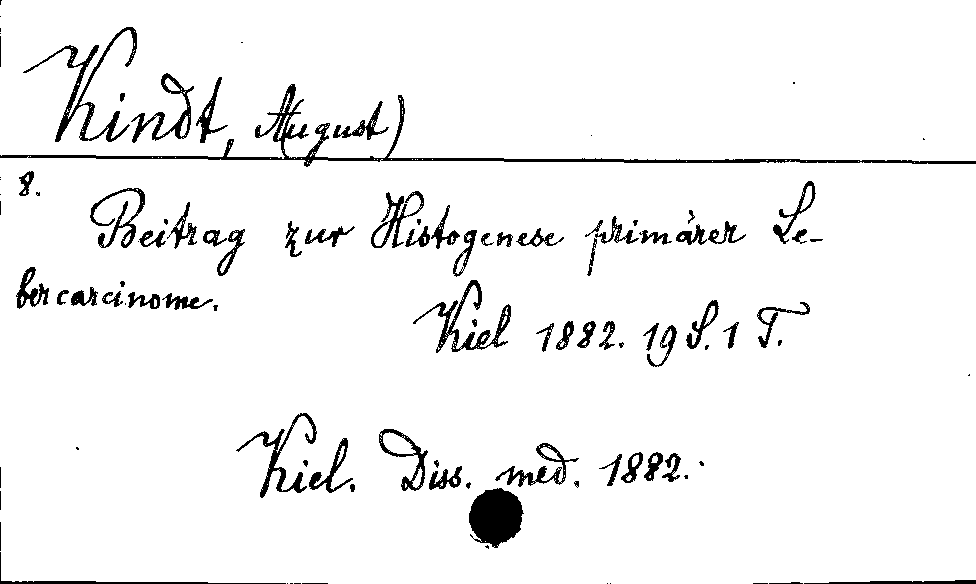 Kindt, August)
8.
Beitrag zur Histogenese primärer Le-
bercarcinome.
Kiel 1882. 19 S. 1 T.
Kiel. Diss. med. 1882.